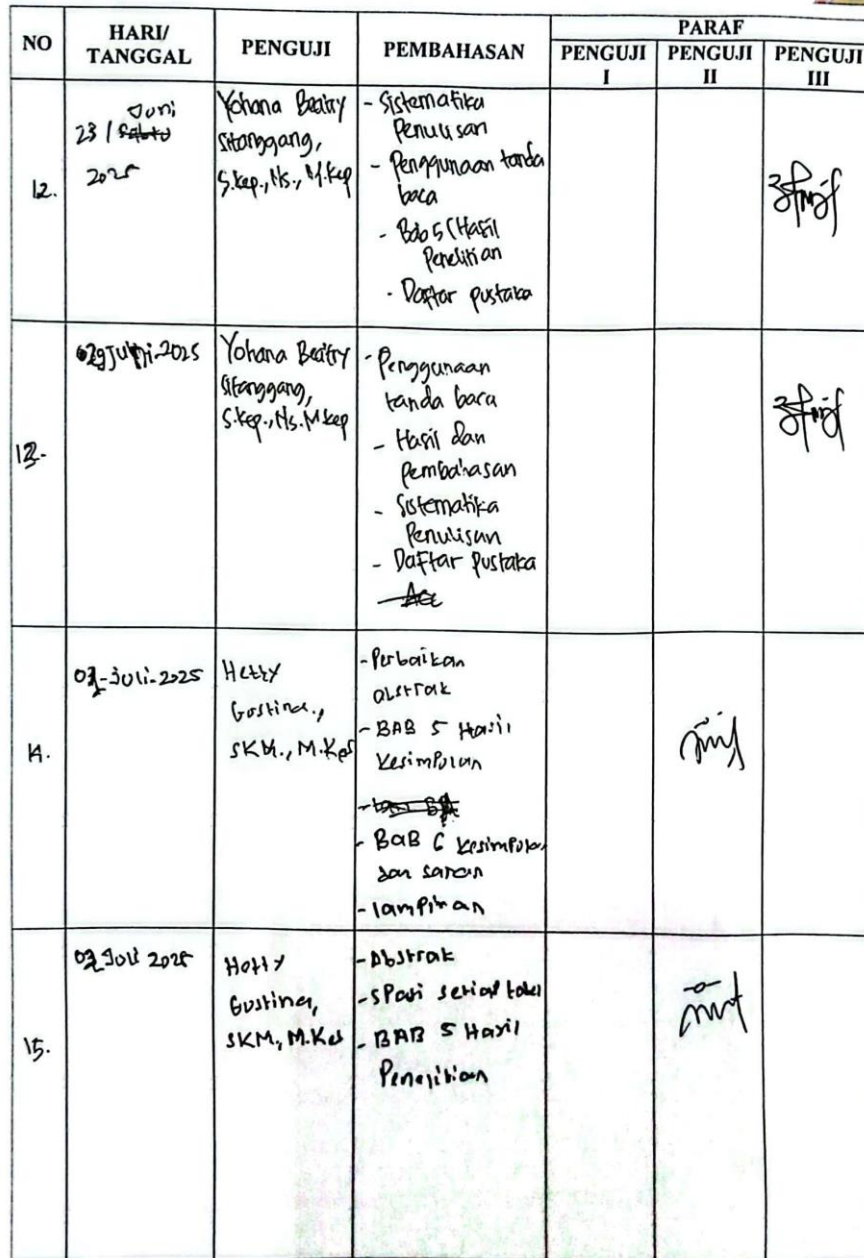 NO
HARI/
TANGGAL
PENGUJI
PEMBAHASAN
PARAF
PENGUJI
I
PENGUJI
II
PENGUJI
III
12.
Juni
23 /
2025
Yohana Beatry
Sitanggang,
S.kep., Ns., M.kep
- Sistematika
Penulisan
- Penggunaan tanda
baca
- Bab 5 (Hasil
Penelitian
- Daftar pustaka
13.
2025
Yohana Beatry
Sitanggang,
S.kep., Ns. M.kep
- Penggunaan
tanda baca
- Hasil dan
Pembahasan
- Sistematika
Penulisan
- Daftar Pustaka
Acc
14.
Juli-2025
Hetty
Gustina.,
SKM., M.Kes
- Perbaikan
abstrak
- BAB 5 Hasil
Kesimpulan
- BAB 6 Kesimpulan
dan saran
- lampiran
15.
Juli 2025
Hetty
Gustina,
SKM., M.Kes
- Abstrak
- SPasi setiap tabel
- BAB 5 Hasil
Penelitian